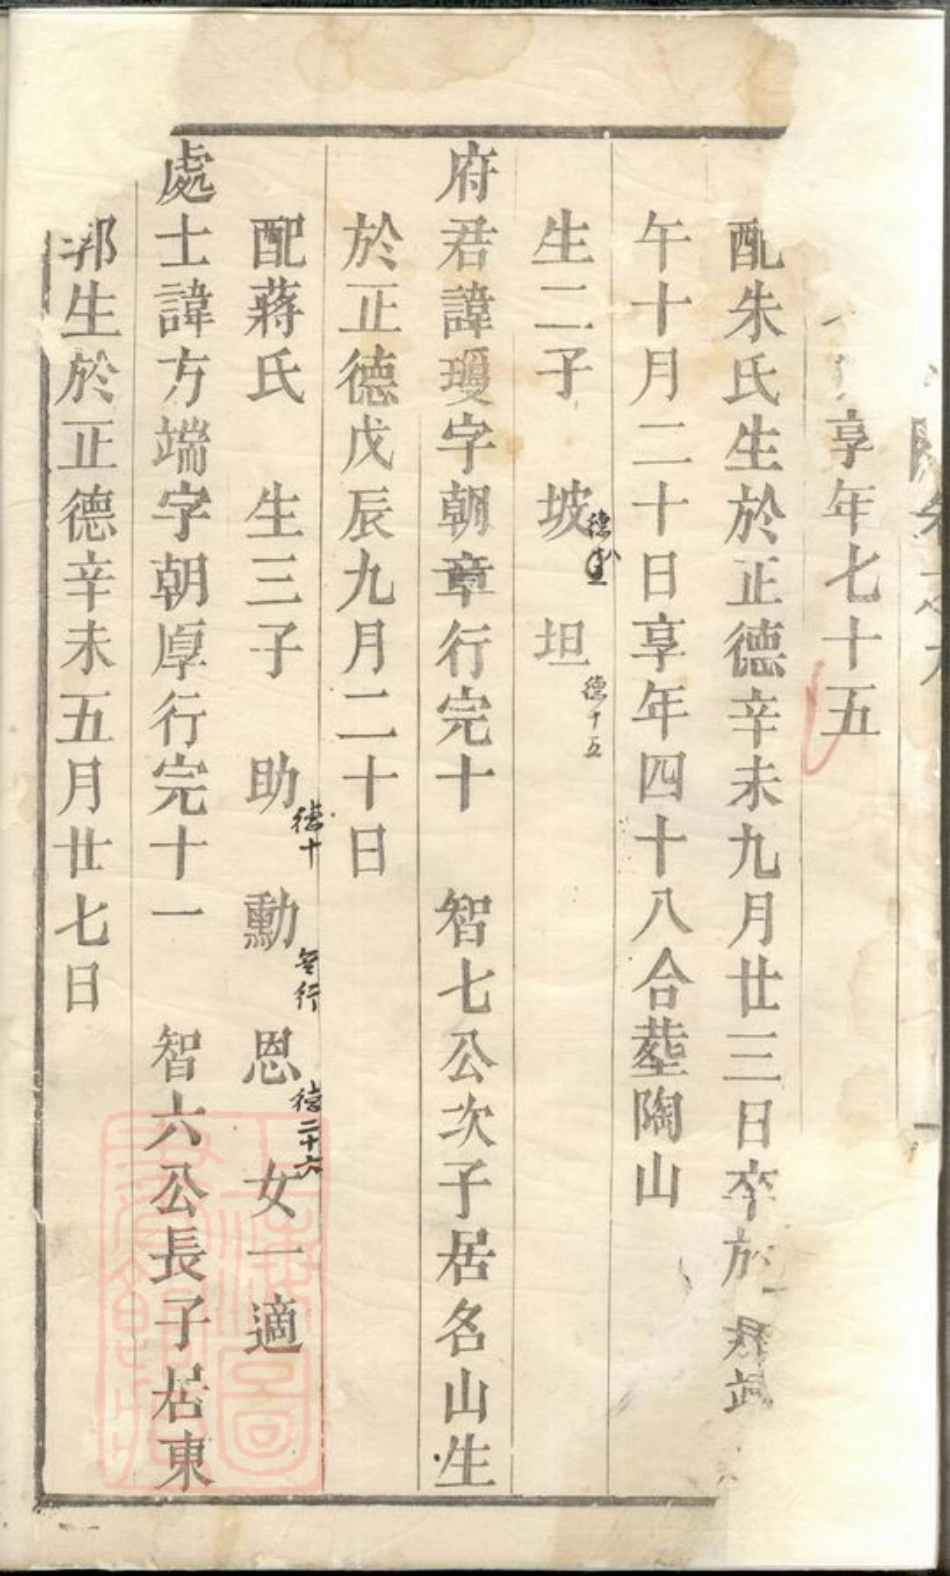 享年七十五
配朱氏生於正德辛未九月廿三日卒於
午十月二十日享年四十八合塟陶山
生二子 坡 德 坦 德十五
府君諱瓊字朝章行完十 智七公次子居名山生
於正德戊辰九月二十日
配蔣氏 生三子 助 德十 勳 無行 恩 德二十六 女一適
處士諱方端字朝厚行完十一 智六公長子居東
郭生於正德辛未五月廿七日
上海圖書館藏